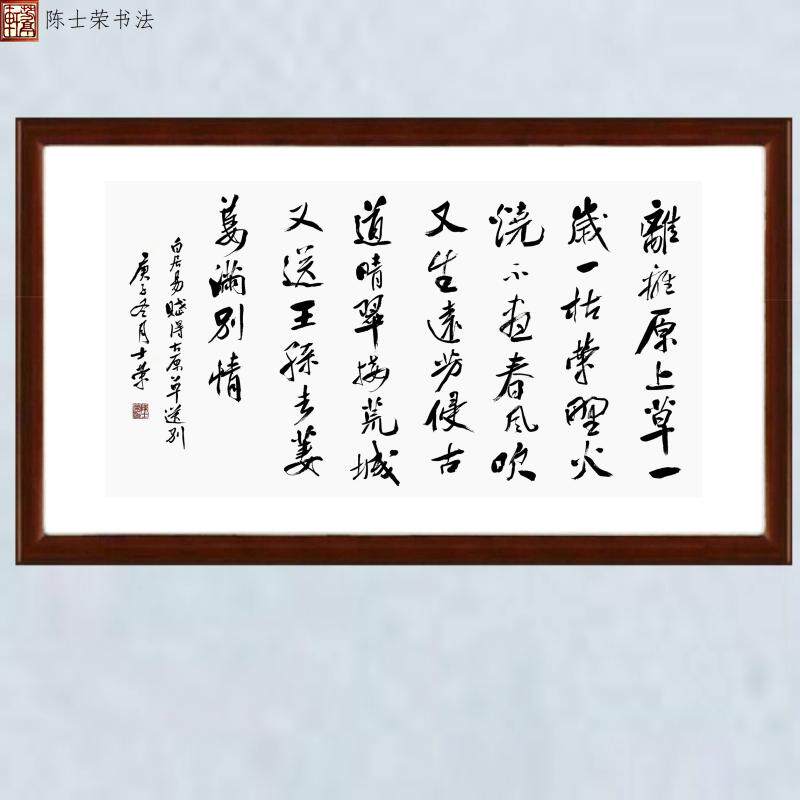 陈士荣书法
離離原上草一
歲一枯榮野火
燒不盡春風吹
又生遠芳侵古
道晴翠接荒城
又送王孫去萋
萋滿別情
白居易賦得古原草送別
庚子冬月士榮